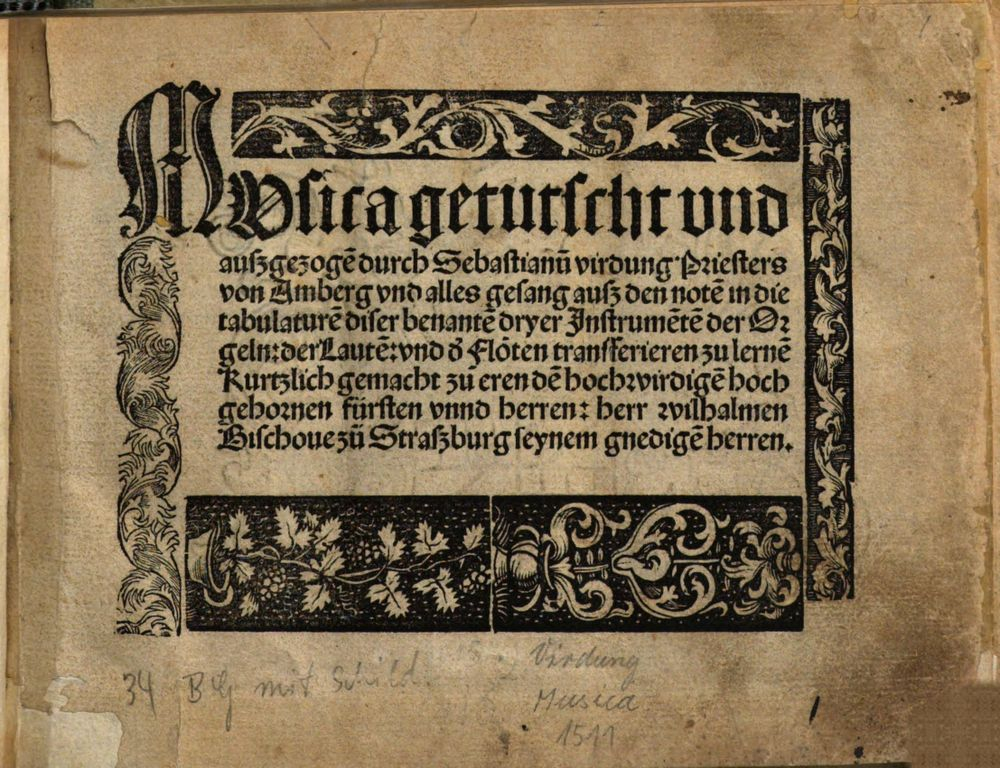 MVsica getutscht vnd
auſzgezogē durch Sebastianū virdung Prieſters
von Amberg vnd alles geſang auſz den notē in die
tabulaturē diſer benantē dryer Inſtrumētē der Or
geln: der Lautē: vnd d̕ Flöten tranſferieren zu lernē
Kurtzlich gemacht zū eren dē hochwirdigē hoch
gebornen fürſten vnnd herren: herr wilhalmen
Biſchoue zū Straſzburg ſeynem gnedigē herren.
34 mit Schild. Virdung
Musica
1511